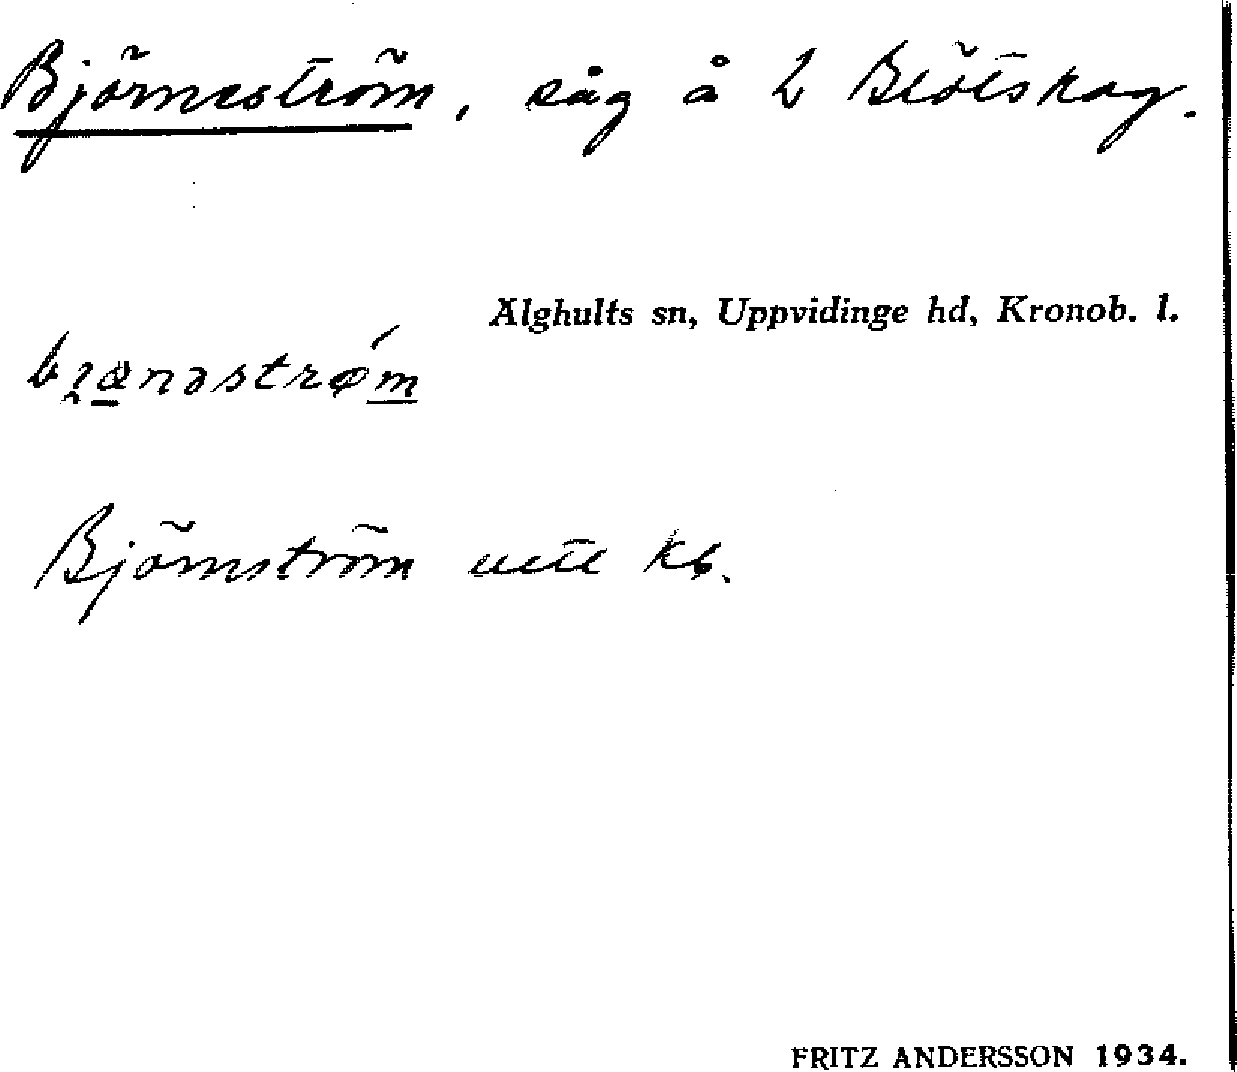 Björneström, såg å L Blötskog.
Älghults sn, Uppvidinge hd, Kronob. l.
bjænəstrǿm
Björnström uttl kb.
FRITZ ANDERSSON 1934.